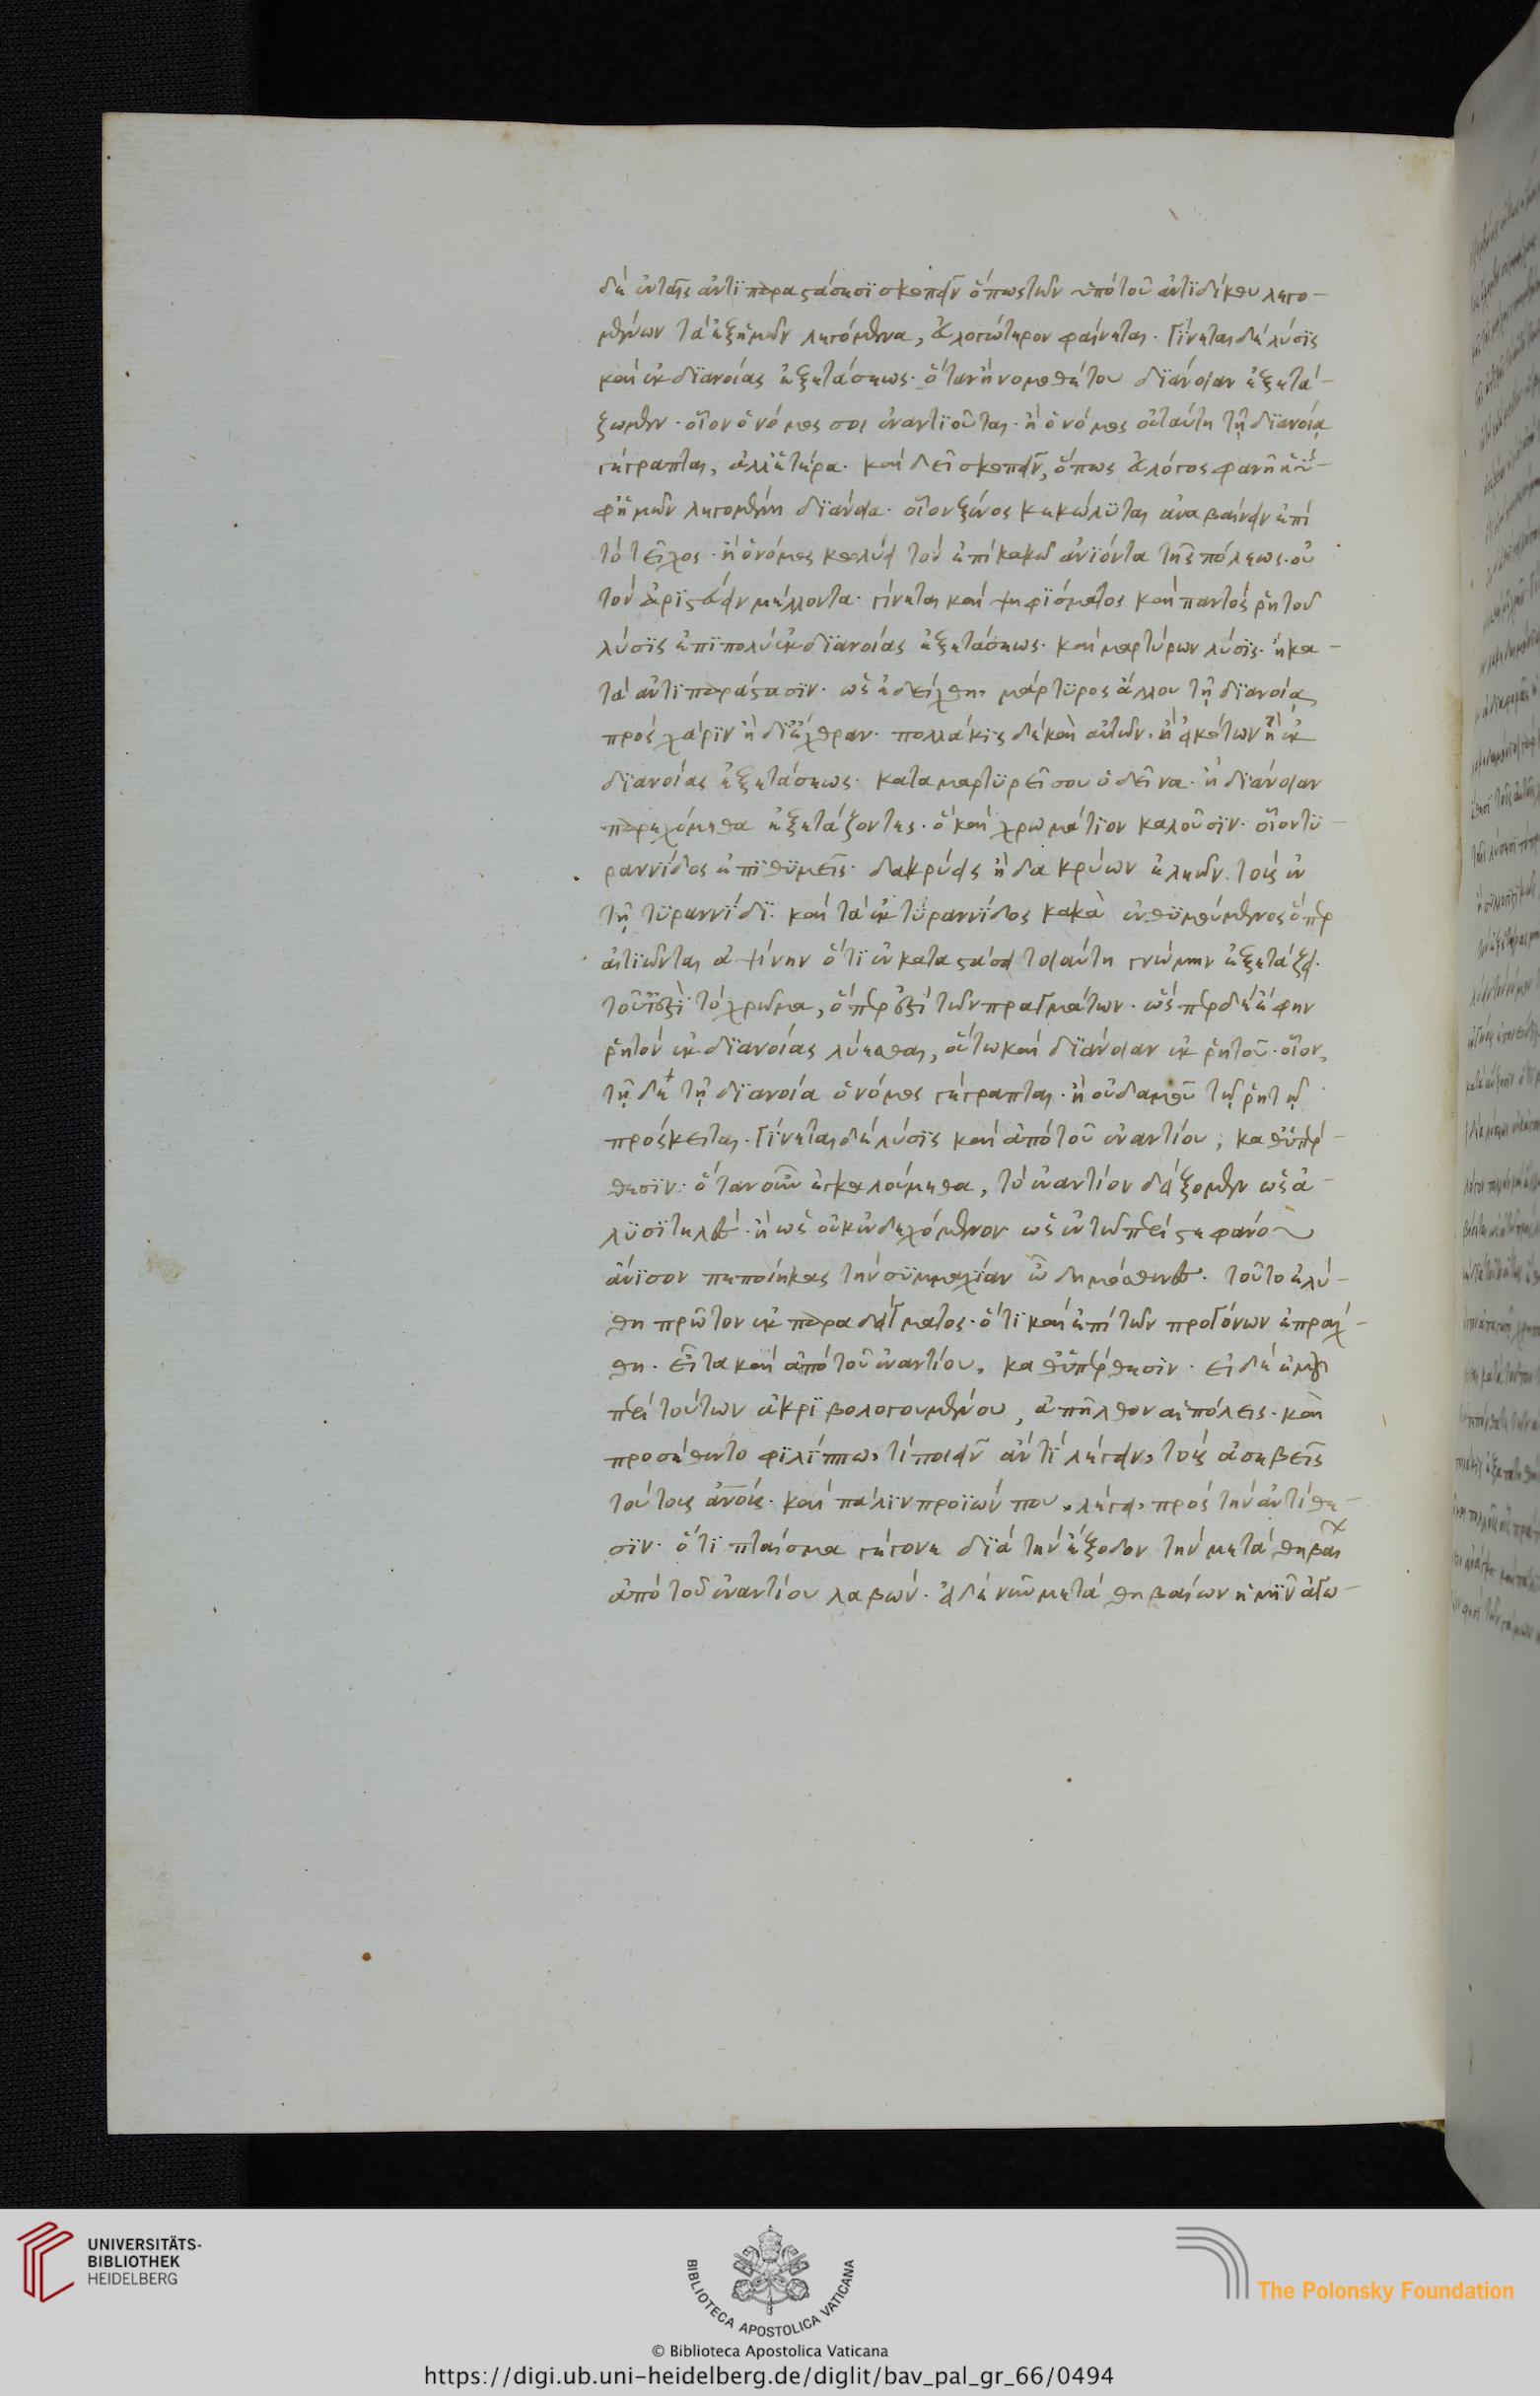 δὲ ἐν ταῖς ἀντιπαραστάσεσι σκοπεῖν ὅπως τῶν ὑπὸ τοῦ ἀντιδίκου λεγο-
μένων τὰ ἐξ ἡμῶν λεγόμενα, εὐλογώτερον φαίνηται. Γίνεται δὲ λύσις
καὶ ἐκ διανοίας ἐξετάσεως. ὅταν ἢ νομοθέτου διάνοιαν ἐξετά-
ζωμεν. οἷον ὁ νόμος σοι ἐναντιοῦται. ἢ ὁ νόμος οὐ ταύτη τῇ διανοίᾳ
γέγραπται, ἀλλ' ἑτέρα. καὶ δεῖ σκοπεῖν, ὅπως εὔλογος φανῇ ἡ ὑ-
φ' ἡμῶν λεγομένη διάνοια. οἷον ξένος κεκώλυται ἀναβαίνειν ἐπὶ
τὸ τεῖχος. ἢ ὁ νόμος κωλύει τὸν ἐπὶ κακῶ ἀνϊόντα τῆς πόλεως. οὐ
τὸν ἀριστεύειν μέλλοντα. γίνεται καὶ ψηφίσματος καὶ παντὸς ῥητοῦ
λύσις ἐπιπολὺ ἐκ διανοίας ἐξετάσεως. καὶ μαρτύρων λύσις. ἡ κα-
τὰ ἀντιπαράστασιν. ὡς ἐδείχθη, μάρτυρος ἄλλου τῇ διανοίᾳ
πρὸς χάριν ἢ δι' ἔχθραν. πολλάκις δὲ καὶ αὐτῶν. ἢ εἰκότων ἢ ἐκ
διανοίας ἐξετάσεως. καταμαρτυρεῖ σου ὁ δεῖνα. ἢ διάνοιαν
παρεχόμεθα ἐξετάζοντες. ὃ καὶ χρωμάτιον καλοῦσιν. οἷον τυ-
ραννίδος ἐπιθυμεῖς. δακρύεις ἢ δακρύων ἐλεῶν τοὺς ἐν
τῇ τυραννίδι. καὶ τὰ ἐκ τυραννίδος κακὰ ἐνθυμούμενος ὅπερ
αἰτιῶνται ἀψίνην ὅτι ἐν καταστάσει τοιαύτη γνώμην ἐξετάζει.
τοῦτ' ἐστὶ τὸ χρῶμα, ὅπερ ἐστὶ τῶν πραγμάτων. ὥσπερ δὲ ἔφην
ῥητὸν ἐκ διανοίας λύεσθαι, οὕτω καὶ διάνοιαν ἐκ ῥητοῦ. οἷον,
τῇδε τῇ διανοία ὁ νόμος γέγραπται. ἢ οὐδαμοῦ τῷ ῥητῷ
πρόσκειται. Γίνεται δὲ λύσις καὶ ἀπὸ τοῦ ἐναντίου, καθ' ὑπέρ-
θεσιν. ὅταν οὖν ἐγκαλούμεθα, τὸ ἐναντίον δείξομεν ὡς ἀ-
λυσιτελὲς. ἢ ὡς οὐκ ἐνδεχόμενον ὡς ἐν τῶ περὶ στεφάνου
ἄνισον πεποίηκας τὴν συμμαχίαν ὦ δημόσθενες. τοῦτο ἐλύ-
θη πρῶτον ἐκ παραδείγματος. ὅτι καὶ ἐπὶ τῶν προγόνων ἐπράχ-
θη. εἶτα καὶ ἀπὸ τοῦ ἐναντίου, καθ' ὑπέρθεσιν. εἰ δὲ ἐμοῦ
περὶ τούτων ἀκριβολογουμένου, ἀπῆλθον αἱ πόλεις. καὶ
προσέθεντο φιλίππω, τί ποιεῖν ἂν τί λέγειν, τοὺς ἀσεβεῖς
τούτους ἀνους. καὶ πάλιν προϊών που, λέγει, πρὸς τὴν ἀντίθε-
σιν. ὅτι πταίσμα γέγονε διὰ τὴν ἔξοδον τὴν μετὰ θηβαι
ἀπὸ τοῦ ἐναντίου λαβών. εἰ δὲ νῦν μετὰ θηβαίων ἡμῖν ἀγω-
UNIVERSITÄTS-
BIBLIOTHEK
HEIDELBERG
BIBLIOTECA APOSTOLICA VATICANA
The Polonsky Foundation
© Biblioteca Apostolica Vaticana
https://digi.ub.uni-heidelberg.de/diglit/bav_pal_gr_66/0494